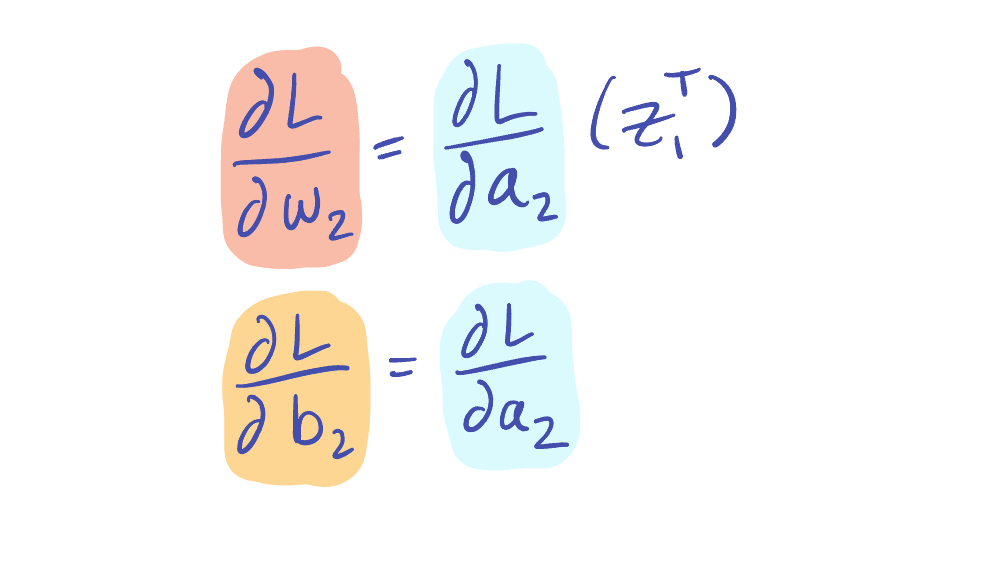 ∂L/∂w₂ = ∂L/∂a₂ (z₁ᵀ)
∂L/∂b₂ = ∂L/∂a₂